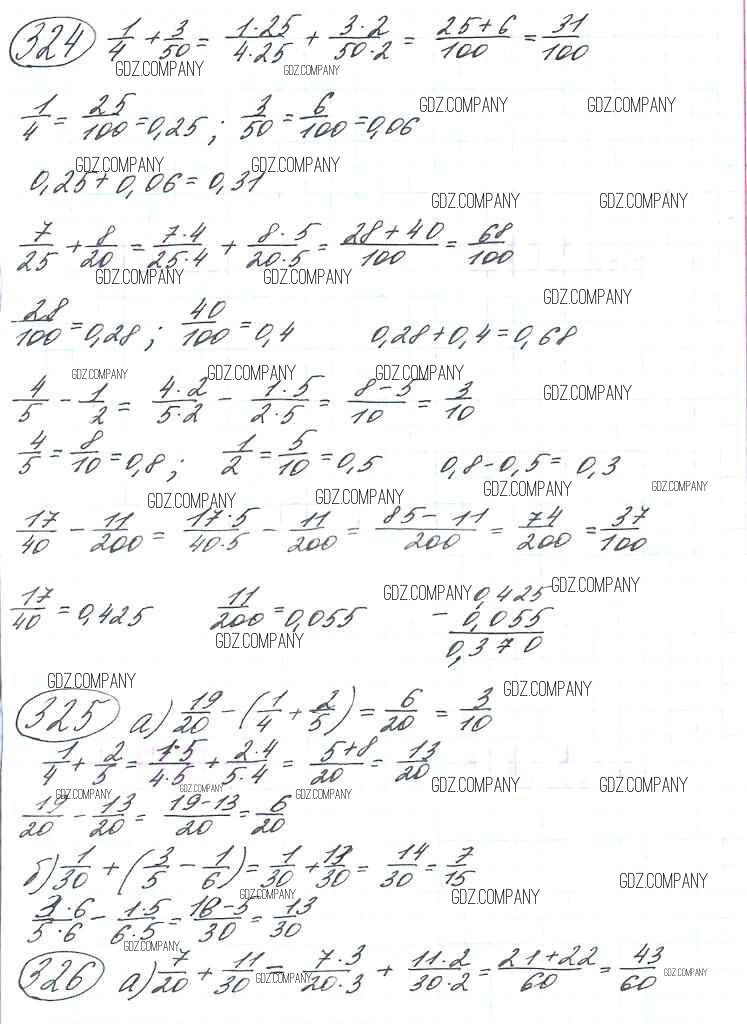 324 1/4 + 3/50 = 1·25/4·25 + 3·2/50·2 = 25+6/100 = 31/100
GDZ.COMPANY GDZ.COMPANY
1/4 = 25/100 = 0,25 ; 3/50 = 6/100 = 0,06 GDZ.COMPANY GDZ.COMPANY
GDZ.COMPANY GDZ.COMPANY
0,25 + 0,06 = 0,31
GDZ.COMPANY GDZ.COMPANY
7/25 + 8/20 = 7·4/25·4 + 8·5/20·5 = 28+40/100 = 68/100
GDZ.COMPANY GDZ.COMPANY
GDZ.COMPANY
28/100 = 0,28 ; 40/100 = 0,4 0,28 + 0,4 = 0,68
GDZ.COMPANY GDZ.COMPANY GDZ.COMPANY
4/5 - 1/2 = 4·2/5·2 - 1·5/2·5 = 8-5/10 = 3/10 GDZ.COMPANY
4/5 = 8/10 = 0,8 ; 1/2 = 5/10 = 0,5 0,8 - 0,5 = 0,3
GDZ.COMPANY GDZ.COMPANY GDZ.COMPANY GDZ.COMPANY
17/40 - 11/200 = 17·5/40·5 - 11/200 = 85-11/200 = 74/200 = 37/100
GDZ.COMPANY 0,425 GDZ.COMPANY
17/40 = 0,425 11/200 = 0,055 - 0,055
GDZ.COMPANY 0,370
GDZ.COMPANY GDZ.COMPANY
325 а) 19/20 - (1/4 + 2/5) = 6/20 = 3/10
1/4 + 2/5 = 1·5/4·5 + 2·4/5·4 = 5+8/20 = 13/20
GDZ.COMPANY GDZ.COMPANY GDZ.COMPANY GDZ.COMPANY GDZ.COMPANY
19/20 - 13/20 = 19-13/20 = 6/20
б) 1/30 + (3/5 - 1/6) = 1/30 + 13/30 = 14/30 = 7/15
GDZ.COMPANY GDZ.COMPANY GDZ.COMPANY
3·6/5·6 - 1·5/6·5 = 18-5/30 = 13/30
GDZ.COMPANY
326 а) 7/20 + 11/30 = 7·3/20·3 + 11·2/30·2 = 21+22/60 = 43/60
GDZ.COMPANY GDZ.COMPANY